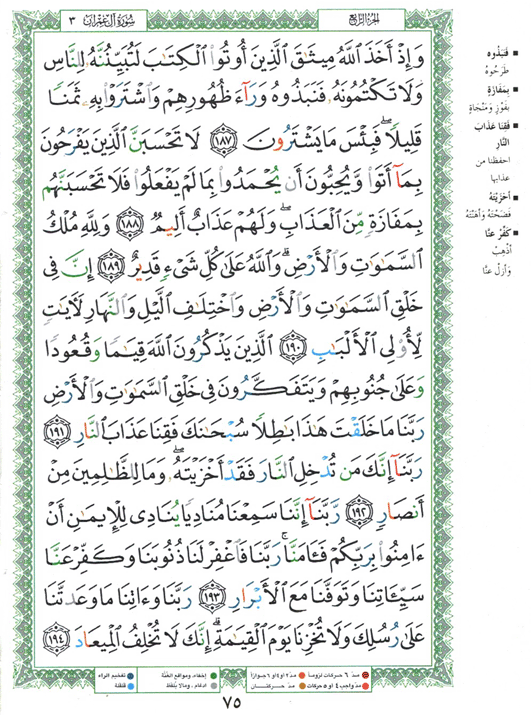 سُورَةُ آلِ عِمْرَان ٣
الجزء الرابع
وَإِذْ أَخَذَ ٱللَّهُ مِيثَٰقَ ٱلَّذِينَ أُوتُوا۟ ٱلْكِتَٰبَ لَتُبَيِّنُنَّهُۥ لِلنَّاسِ
وَلَا تَكْتُمُونَهُۥ فَنَبَذُوهُ وَرَآءَ ظُهُورِهِمْ وَٱشْتَرَوْا۟ بِهِۦ ثَمَنًا
قَلِيلًا ۖ فَبِئْسَ مَا يَشْتَرُونَ ١٨٧ لَا تَحْسَبَنَّ ٱلَّذِينَ يَفْرَحُونَ
بِمَآ أَتَوا۟ وَّيُحِبُّونَ أَن يُحْمَدُوا۟ بِمَا لَمْ يَفْعَلُوا۟ فَلَا تَحْسَبَنَّهُم
بِمَفَازَةٍ مِّنَ ٱلْعَذَابِ ۖ وَلَهُمْ عَذَابٌ أَلِيمٌ ١٨٨ وَلِلَّهِ مُلْكُ
ٱلسَّمَٰوَٰتِ وَٱلْأَرْضِ ۗ وَٱللَّهُ عَلَىٰ كُلِّ شَىْءٍ قَدِيرٌ ١٨٩ إِنَّ فِى
خَلْقِ ٱلسَّمَٰوَٰتِ وَٱلْأَرْضِ وَٱخْتِلَٰفِ ٱلَّيْلِ وَٱلنَّهَارِ لَءَايَٰتٍ
لِّأُو۟لِى ٱلْأَلْبَٰبِ ١٩٠ ٱلَّذِينَ يَذْكُرُونَ ٱللَّهَ قِيَٰمًا وَقُعُودًا
وَعَلَىٰ جُنُوبِهِمْ وَيَتَفَكَّرُونَ فِى خَلْقِ ٱلسَّمَٰوَٰتِ وَٱلْأَرْضِ
رَبَّنَا مَا خَلَقْتَ هَٰذَا بَٰطِلًا سُبْحَٰنَكَ فَقِنَا عَذَابَ ٱلنَّارِ ١٩١
رَبَّنَآ إِنَّكَ مَن تُدْخِلِ ٱلنَّارَ فَقَدْ أَخْزَيْتَهُۥ ۖ وَمَا لِلظَّٰلِمِينَ مِنْ
أَنصَارٍ ١٩٢ رَّبَّنَآ إِنَّنَا سَمِعْنَا مُنَادِيًا يُنَادِى لِلْإِيمَٰنِ أَنْ
ءَامِنُوا۟ بِرَبِّكُمْ فَـَٔامَنَّا ۚ رَبَّنَا فَٱغْفِرْ لَنَا ذُنُوبَنَا وَكَفِّرْ عَنَّا
سَيِّـَٔاتِنَا وَتَوَفَّنَا مَعَ ٱلْأَبْرَارِ ١٩٣ رَبَّنَا وَءَاتِنَا مَا وَعَدتَّنَا
عَلَىٰ رُسُلِكَ وَلَا تُخْزِنَا يَوْمَ ٱلْقِيَٰمَةِ ۗ إِنَّكَ لَا تُخْلِفُ ٱلْمِيعَادَ ١٩٤
فَنَبَذُوهُ
طَرَحُوهُ
بِمَفَازَةٍ
بِفَوْزٍ وَمَنْجَاةٍ
فَقِنَا عَذَابَ
النَّارِ
احفظنا من
عذابها
أَخْزَيْتَهُ
فَضَحْتَهُ وَأَهَنْتَهُ
كَفِّرْ عَنَّا
أَذْهِبْ
وَأَزِلْ عَنَّا
مدّ ٦ حركات لزوماً
مدّ ٢ أو ٤ أو ٦ جوازاً
إخفاء، ومواقع الغنّة
تفخيم الراء
مدّ واجب ٤ أو ٥ حركات
مدّ حركتان
ادغام، وما لا يلفظ
قلقلة
٧٥